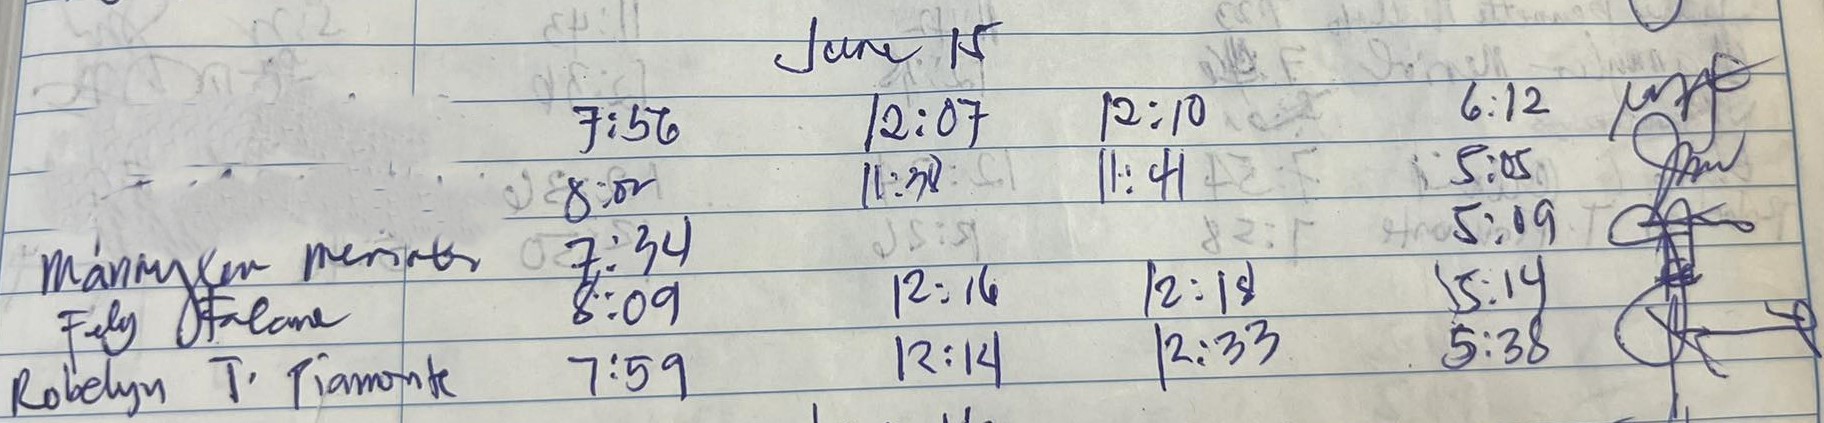 June 15
7:56 12:07 12:10 6:12
8:02 11:38 11:41 5:05
7:34 5:09
Fely 8:09 12:16 12:18 5:14
Robelyn T. Piamonte 7:59 12:14 12:33 5:38